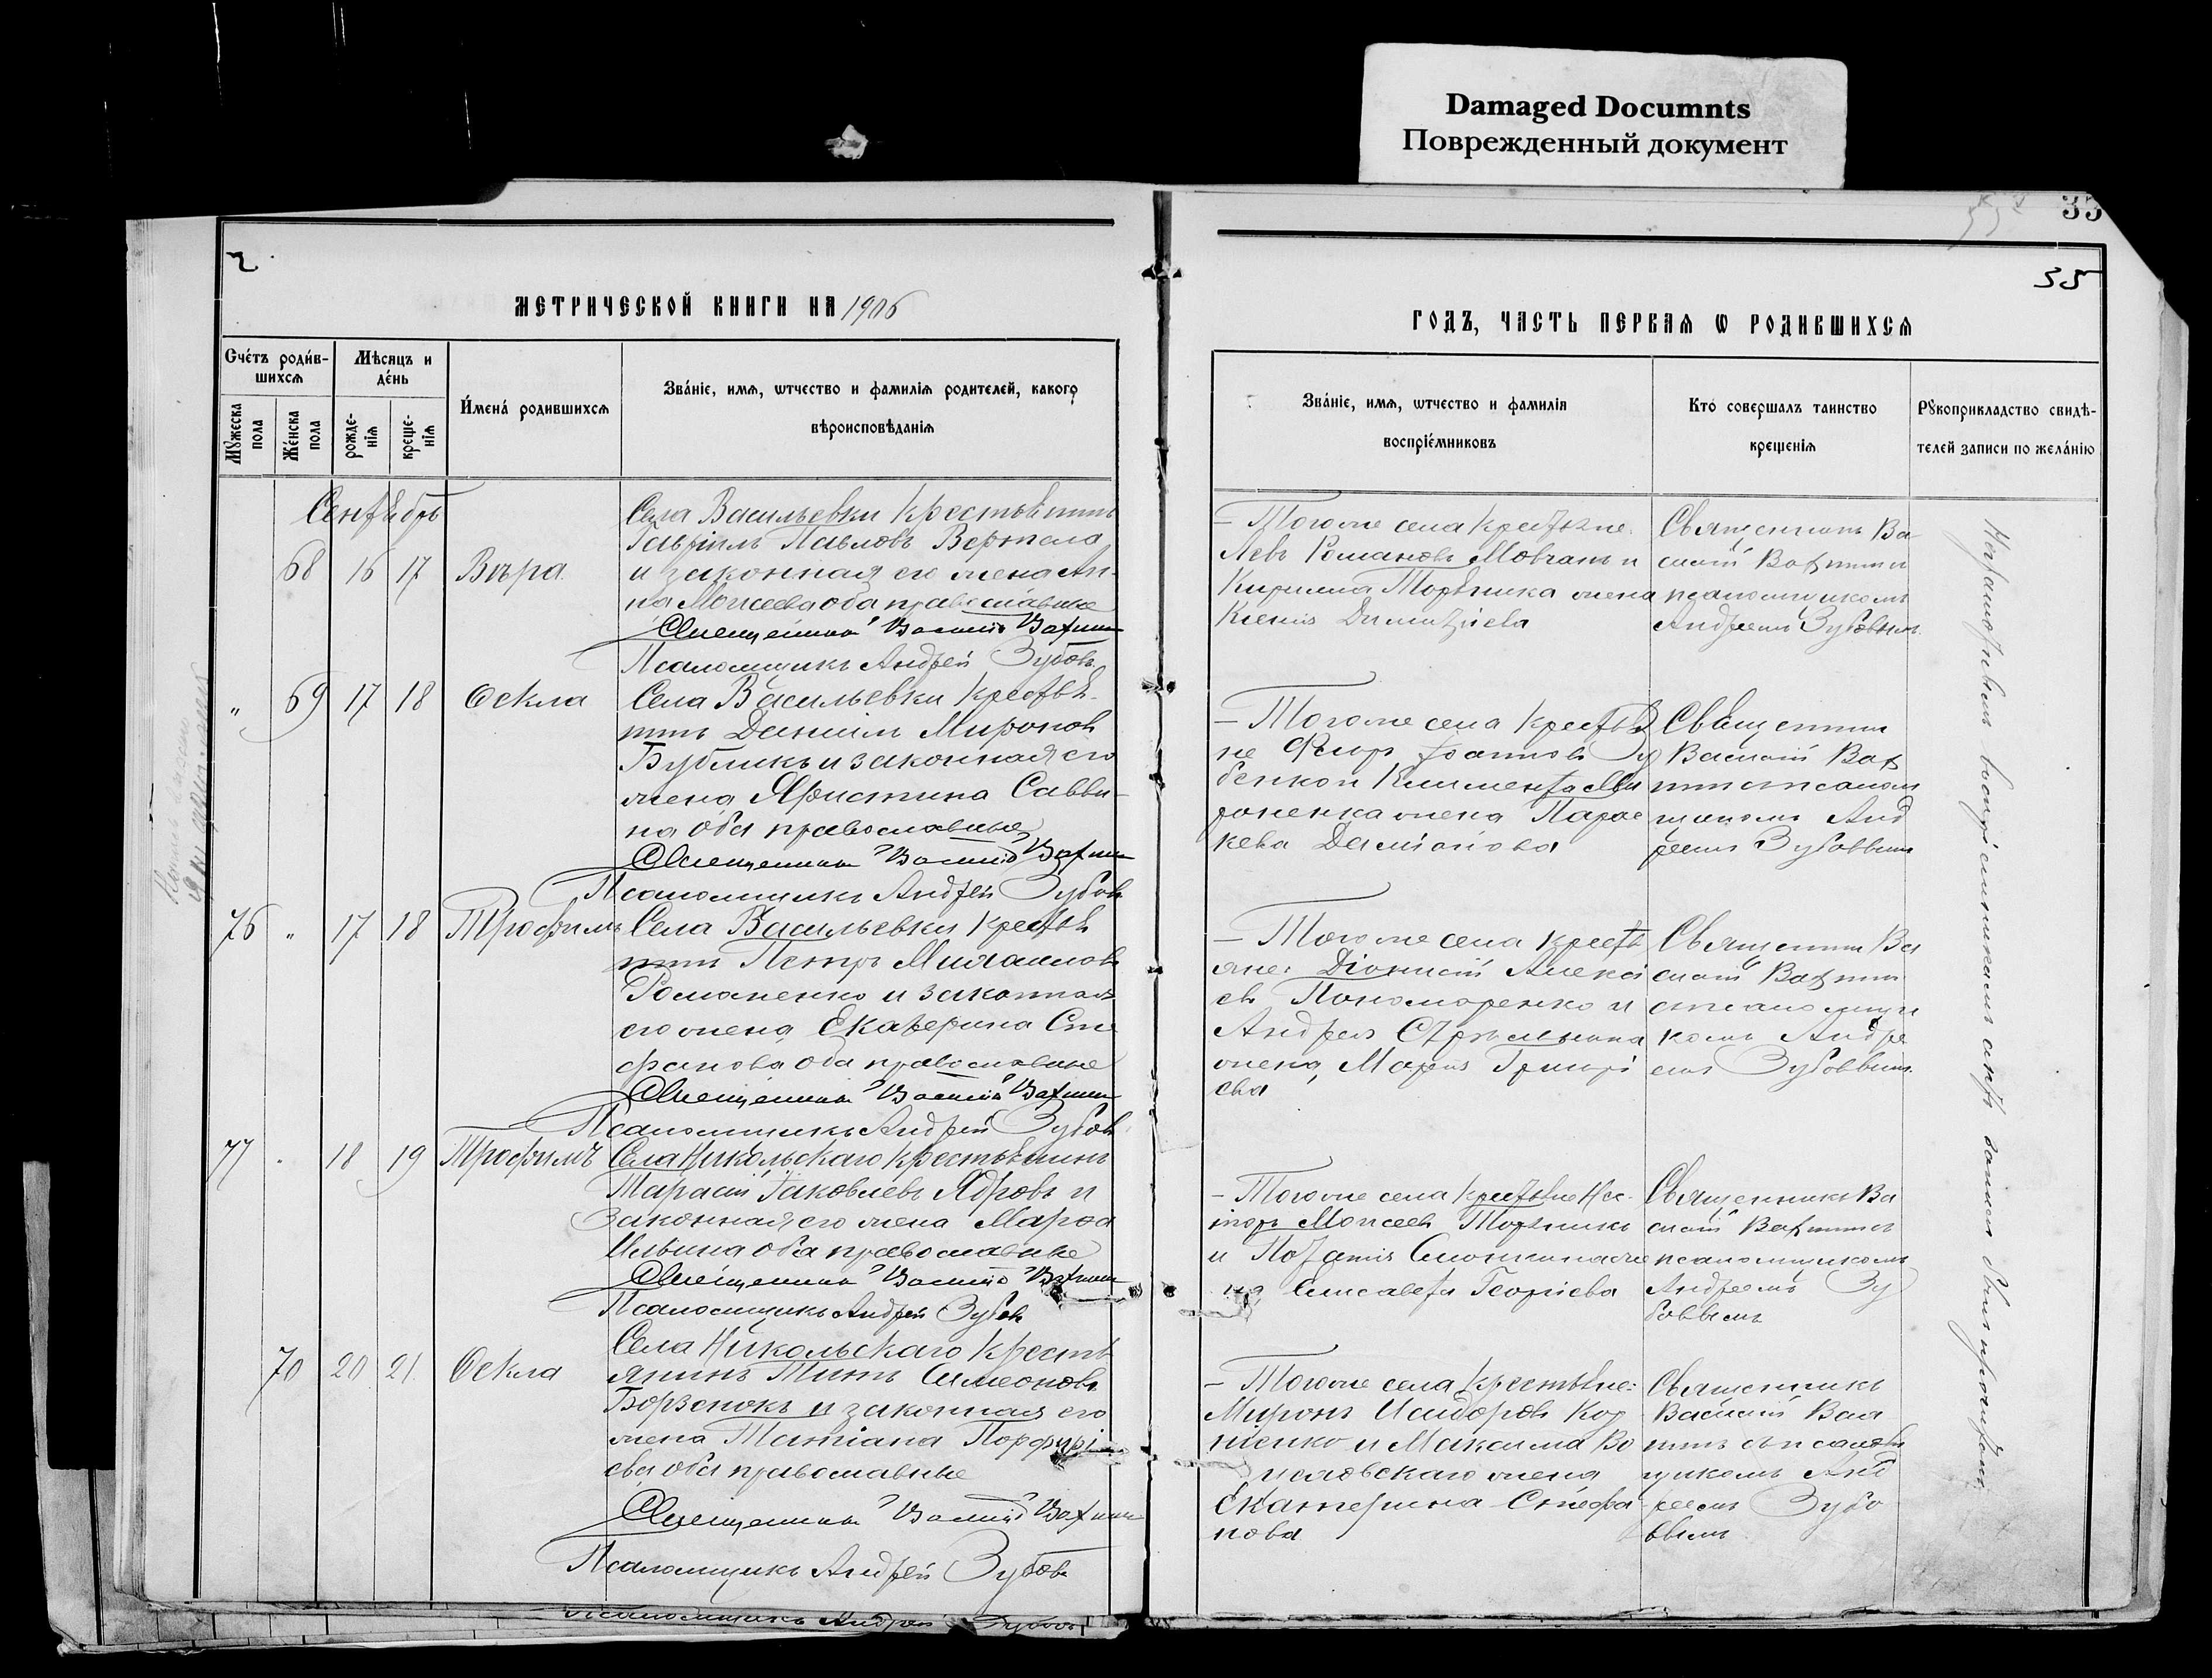 Damaged Documnts
Поврежденный документ
33
35
МЕТРИЧЕСКОЙ КНИГИ НА 1906
ГОДЪ, ЧАСТЬ ПЕРВАѦ Ѡ РОДИВШИХСѦ
Счéтъ роди́вшихсѧ
Мꙋжеска пола
Же́нска пола
Мѣсяцъ и де́нь
рожденіѧ
крещеніѧ
И́мена́ родившихсѧ
Зва́ніе, имѧ, ѡтчество и фамилїѧ родителей, какогѡ
вѣроисповѣданіѧ
Зва́ніе, имѧ, ѡтчество и фамилїѧ
воспріе́мниковъ
Кто́ совершалъ таинство
крещенїѧ
Рꙋкоприкладство свидѣ-
телей записи по жела́нію
Сентябрь
68 16 17 Вѣра
Села Васильевки крестьянинъ
Гавріилъ Павловъ Вертела
и законная его жена Ан-
на Моисеева оба православные
Священникъ Василій
Псаломщикъ Андрей Зубовъ
– Того же села крестьяне:
Левъ Романовъ Мовчанъ и
Кирилла Торяника жена
Ксенія Димитріева
Священникъ Ва-
силій
псаломщикомъ
Андреемъ Зубовымъ
" 69 17 18 Ѳекла
Села Васильевки крестья-
нинъ Даніилъ Мироновъ
Бубликъ и законная его
жена Христина Савви-
на оба православные
Священникъ Василій
Псаломщикъ Андрей Зубовъ
– Того же села крестья
не Флоръ Іоанновъ Зу
бенко и Климента Ми
роненка жена Парас
кева Даміанова
Священникъ
Василій
псалом
щикомъ Анд
реемъ Зубовымъ
76 " 17 18 Трофимъ
Села Васильевки крестья
нинъ Петръ Михаиловъ
Романенко и законная
его жена Екатерина Сте
фанова оба православные
Священникъ Василій
Псаломщикъ Андрей Зубовъ
– Того же села крестья
не: Діонисій Алексі
евъ Пономаренко и
Андрея Стрѣльника
жена Марія Григорі
ева
Священникъ Ва
силій
псаломщи
комъ Андре
емъ Зубовымъ
77 18 19 Трофимъ
Села Никольскаго крестьянинъ
Тарасій Іаковлевъ Ядровъ и
законная его жена Марѳа
Ильина оба православные
Священникъ Василій
Псаломщикъ Андрей Зубовъ
– Того же села крестьяне Нес-
торъ Моисеевъ Торяникъ
и
на Елисавета Георгіева
Священникъ Ва
силій
псаломщикомъ
Андреемъ Зу
бовымъ
70 20 21 Ѳекла
Села Никольскаго кресть
янинъ Титъ Симеоновъ
Борзенокъ и законная его
жена Татіана Порфирі
ева оба православные
Священникъ Василій
Псаломщикъ Андрей Зубовъ
– Того же села крестьяне:
Миронъ Исидоровъ
и Максима
жена
Екатерина Стефа
нова
Священникъ
Василій
съ псалом
щикомъ Анд
реемъ Зубо
вымъ
Псаломщикъ Андрей Зубовъ